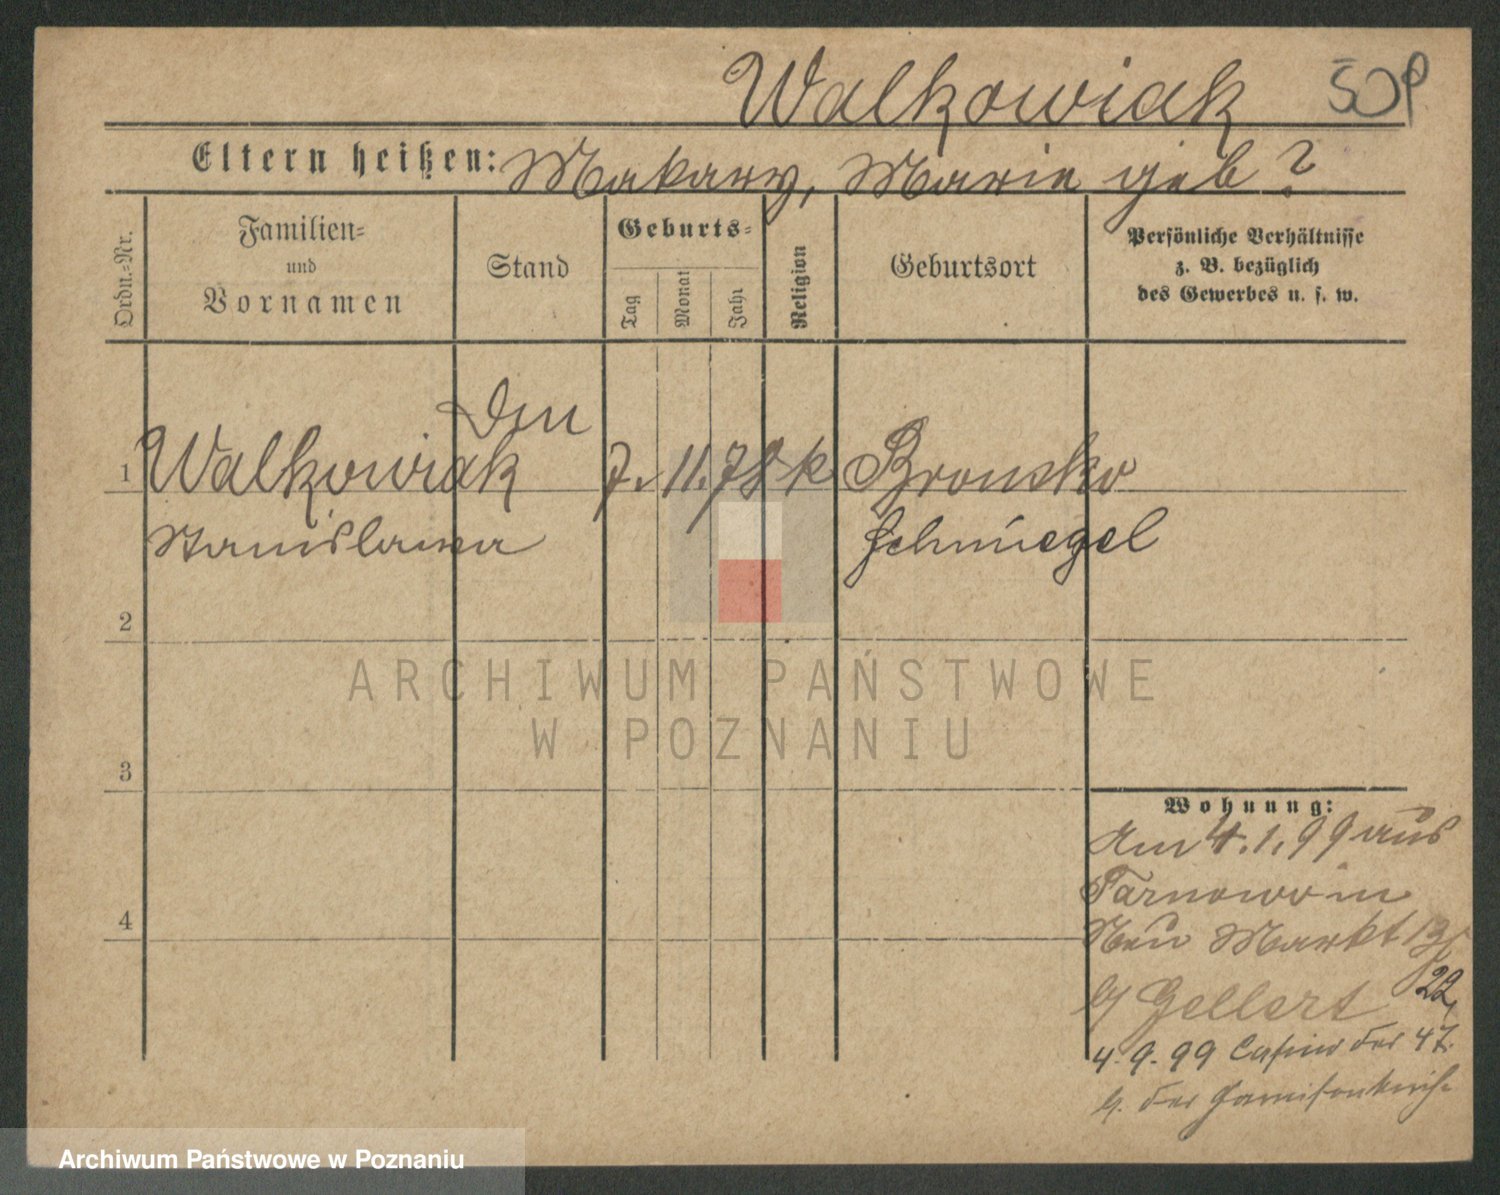 Walkowiak
Eltern heißen: Makary, Marie geb ?
Ordn.-Nr.
Familien-
und
Vornamen
Stand
Geburts-
Tag
Monat
Jahr
Religion
Geburtsort
Persönliche Verhältnisse
z. B. bezüglich
des Gewerbes u. s. w.
1 Walkowiak 7. 11. 78 k Bronsko
Stanislawa Schmiegel
2
3
4
ARCHIWUM PAŃSTWOWE
W POZNANIU
Wohnung:
Am 4.1.99 aus
Tarnowo in
Neu Markt
b/ Gellert 22
4.9.99 Casino der 47.
b. der Garnisonkirche
Archiwum Państwowe w Poznaniu